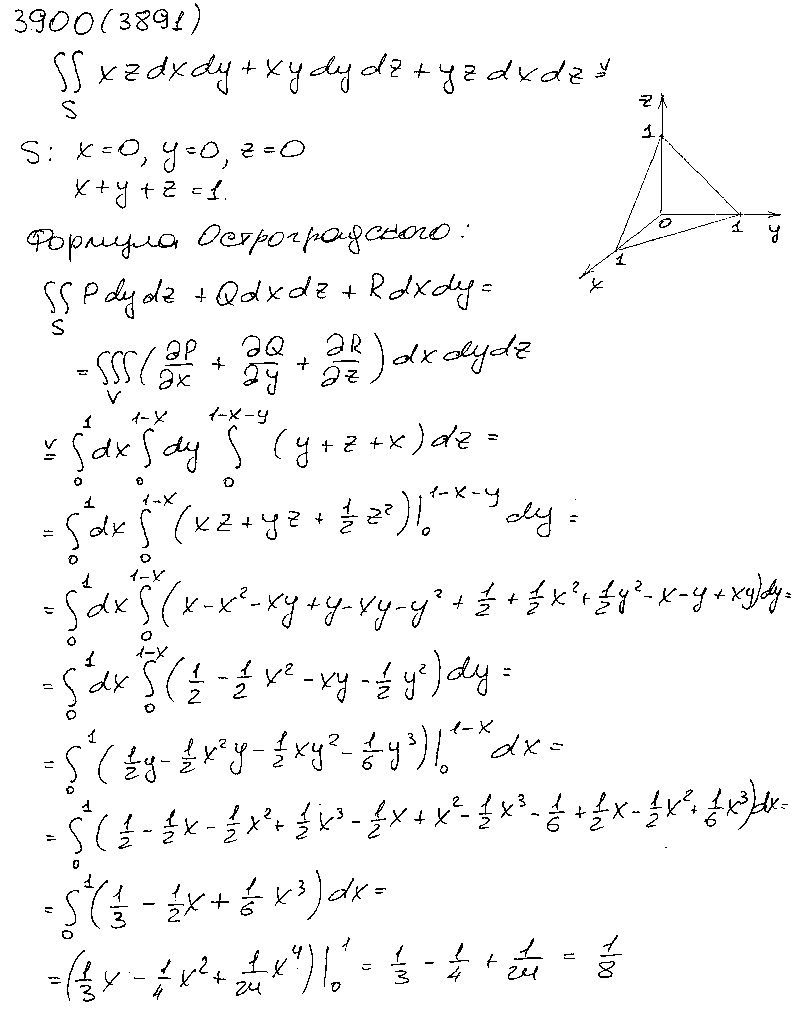 3900(3891)
∬_S xz dxdy + xy dydz + yz dxdz ≚
S: x=0, y=0, z=0
x+y+z=1.
z
1
0
1
y
1
x
Формула Остроградского:
∬_S P dydz + Q dxdz + R dxdy =
= ∭_V (∂P/∂x + ∂Q/∂y + ∂R/∂z) dxdydz
≚ ∫_0^1 dx ∫_0^{1-x} dy ∫_0^{1-x-y} (y+z+x) dz =
= ∫_0^1 dx ∫_0^{1-x} (xz + yz + 1/2 z²)|_0^{1-x-y} dy =
= ∫_0^1 dx ∫_0^{1-x} (x - x² - xy + y - xy - y² + 1/2 + 1/2 x² + 1/2 y² - x - y + xy) dy =
= ∫_0^1 dx ∫_0^{1-x} (1/2 - 1/2 x² - xy - 1/2 y²) dy =
= ∫_0^1 (1/2 y - 1/2 x²y - 1/2 xy² - 1/6 y³)|_0^{1-x} dx =
= ∫_0^1 (1/2 - 1/2 x - 1/2 x² + 1/2 x³ - 1/2 x + x² - 1/2 x³ - 1/6 + 1/2 x - 1/2 x² + 1/6 x³) dx =
= ∫_0^1 (1/3 - 1/2 x + 1/6 x³) dx =
= (1/3 x - 1/4 x² + 1/24 x⁴)|_0^1 = 1/3 - 1/4 + 1/24 = 1/8